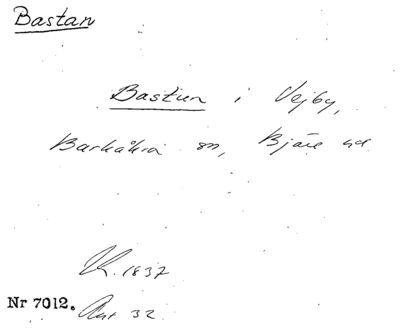 Bastan
Bastun i Vejby,
Barkåkra sn, Bjäre hd
K. 1837
Nr 7012. Ant 32